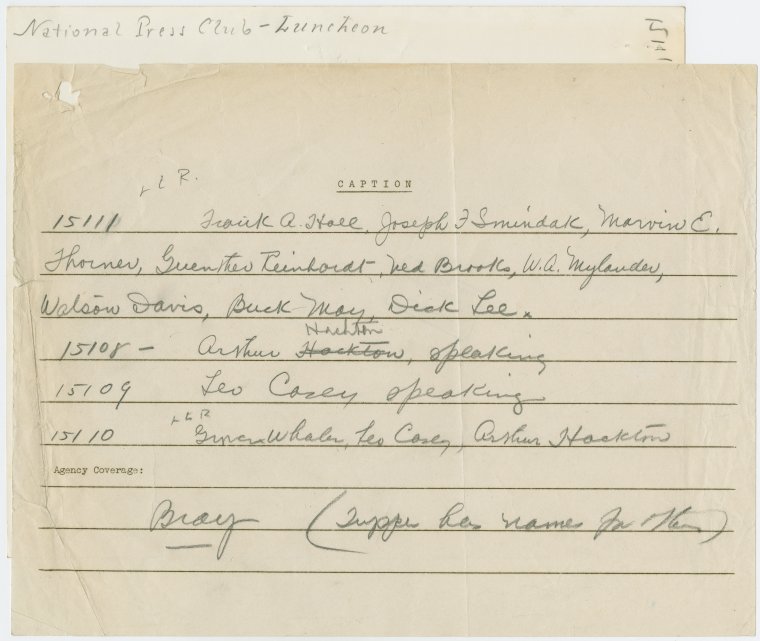 National Press Club - Luncheon
L R.
CAPTION
15111 Frank A. Hall, Joseph F Smindak, Marvin E.
Thorner, Guenther Reinhardt, Ned Brooks, W.A. Mylander,
Watson Davis, Buck May, Dick Lee.
Houkton
15108 - Arthur Hockton, speaking
15109 Leo Casey speaking
L R
15110 Grover Whalen, Leo Casey, Arthur Hockton
Agency Coverage:
Bray (Tupper has names for them)